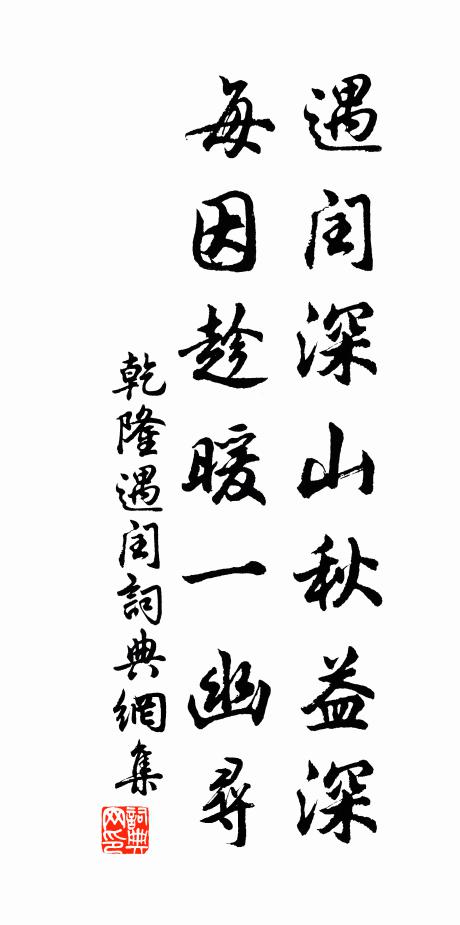 遇闰深山秋益深
每因趁暖一幽尋
乾隆遇闰詞典網集
詞典网印